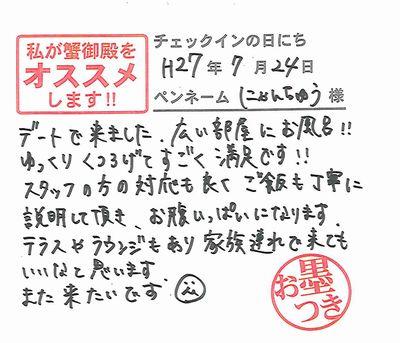 私が蟹御殿を
オススメ
します!!
チェックインの日にち
H27年7月24日
ペンネーム にょんちゅう 様
デートで来ました。広い部屋にお風呂!!
ゆっくりくつろげてすごく満足です!!
スタッフの方の対応も良くご飯も丁寧に
説明して頂き、お腹いっぱいになります。
テラスやラウンジもあり家族連れで来ても
いいなと思います。
また来たいです。
お墨つき